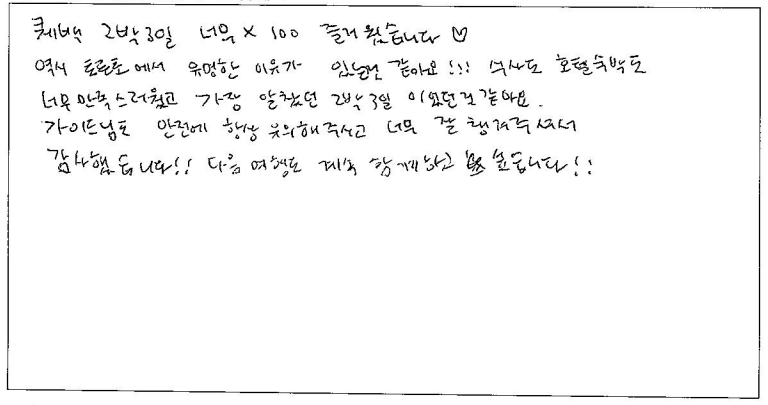 퀘백 2박3일 너무 × 100 즐거웠습니다 ♡
역시 토론토에서 유명한 이유가 있는것 같아요!!! 식사도 호텔숙박도
너무 만족스러웠고 가장 알찼던 2박3일 이었던것같아요.
가이드님도 안전에 항상 유의해주시고 너무 잘 챙겨주셔서
감사했습니다!! 다음 여행도 계속 함께하고 싶습니다!!